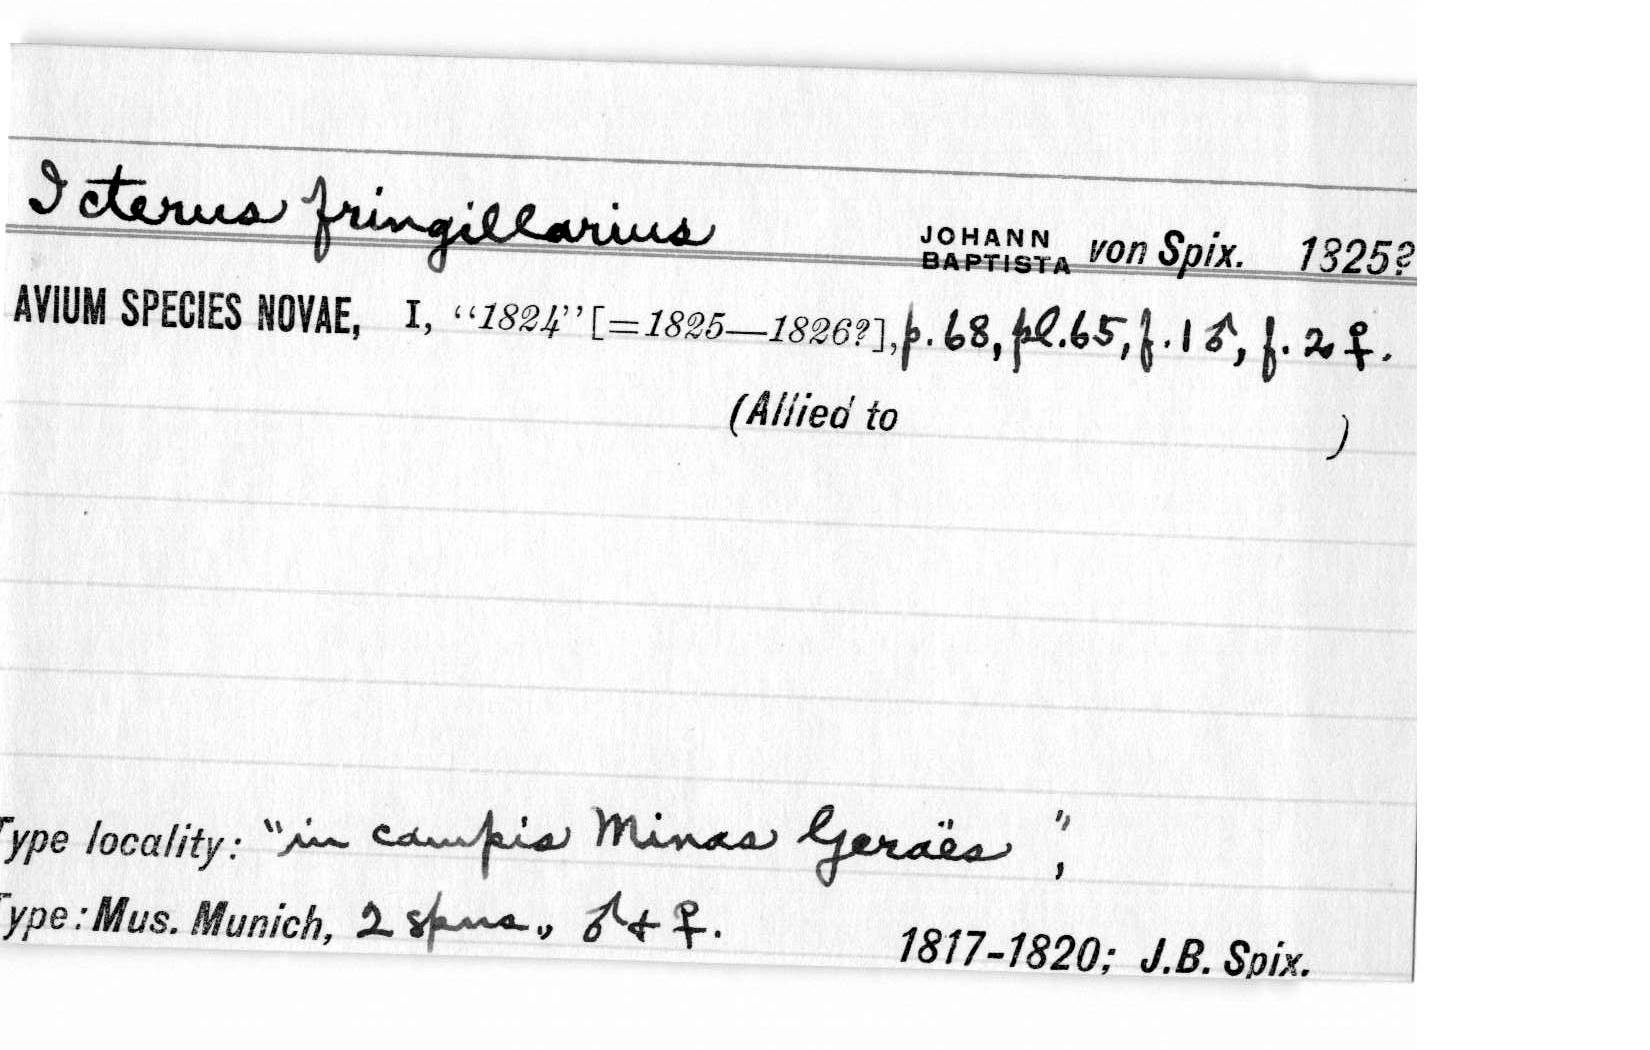 Icterus fringillarius JOHANN BAPTISTA von Spix. 1825?
AVIUM SPECIES NOVAE, I, “1824” [=1825—1826?], p. 68, pl. 65, f. 1 ♂, f. 2 ♀.
(Allied to )
Type locality: "in campis Minas Geraës",
Type: Mus. Munich, 2 spms., ♂ + ♀.
1817-1820; J.B. Spix.